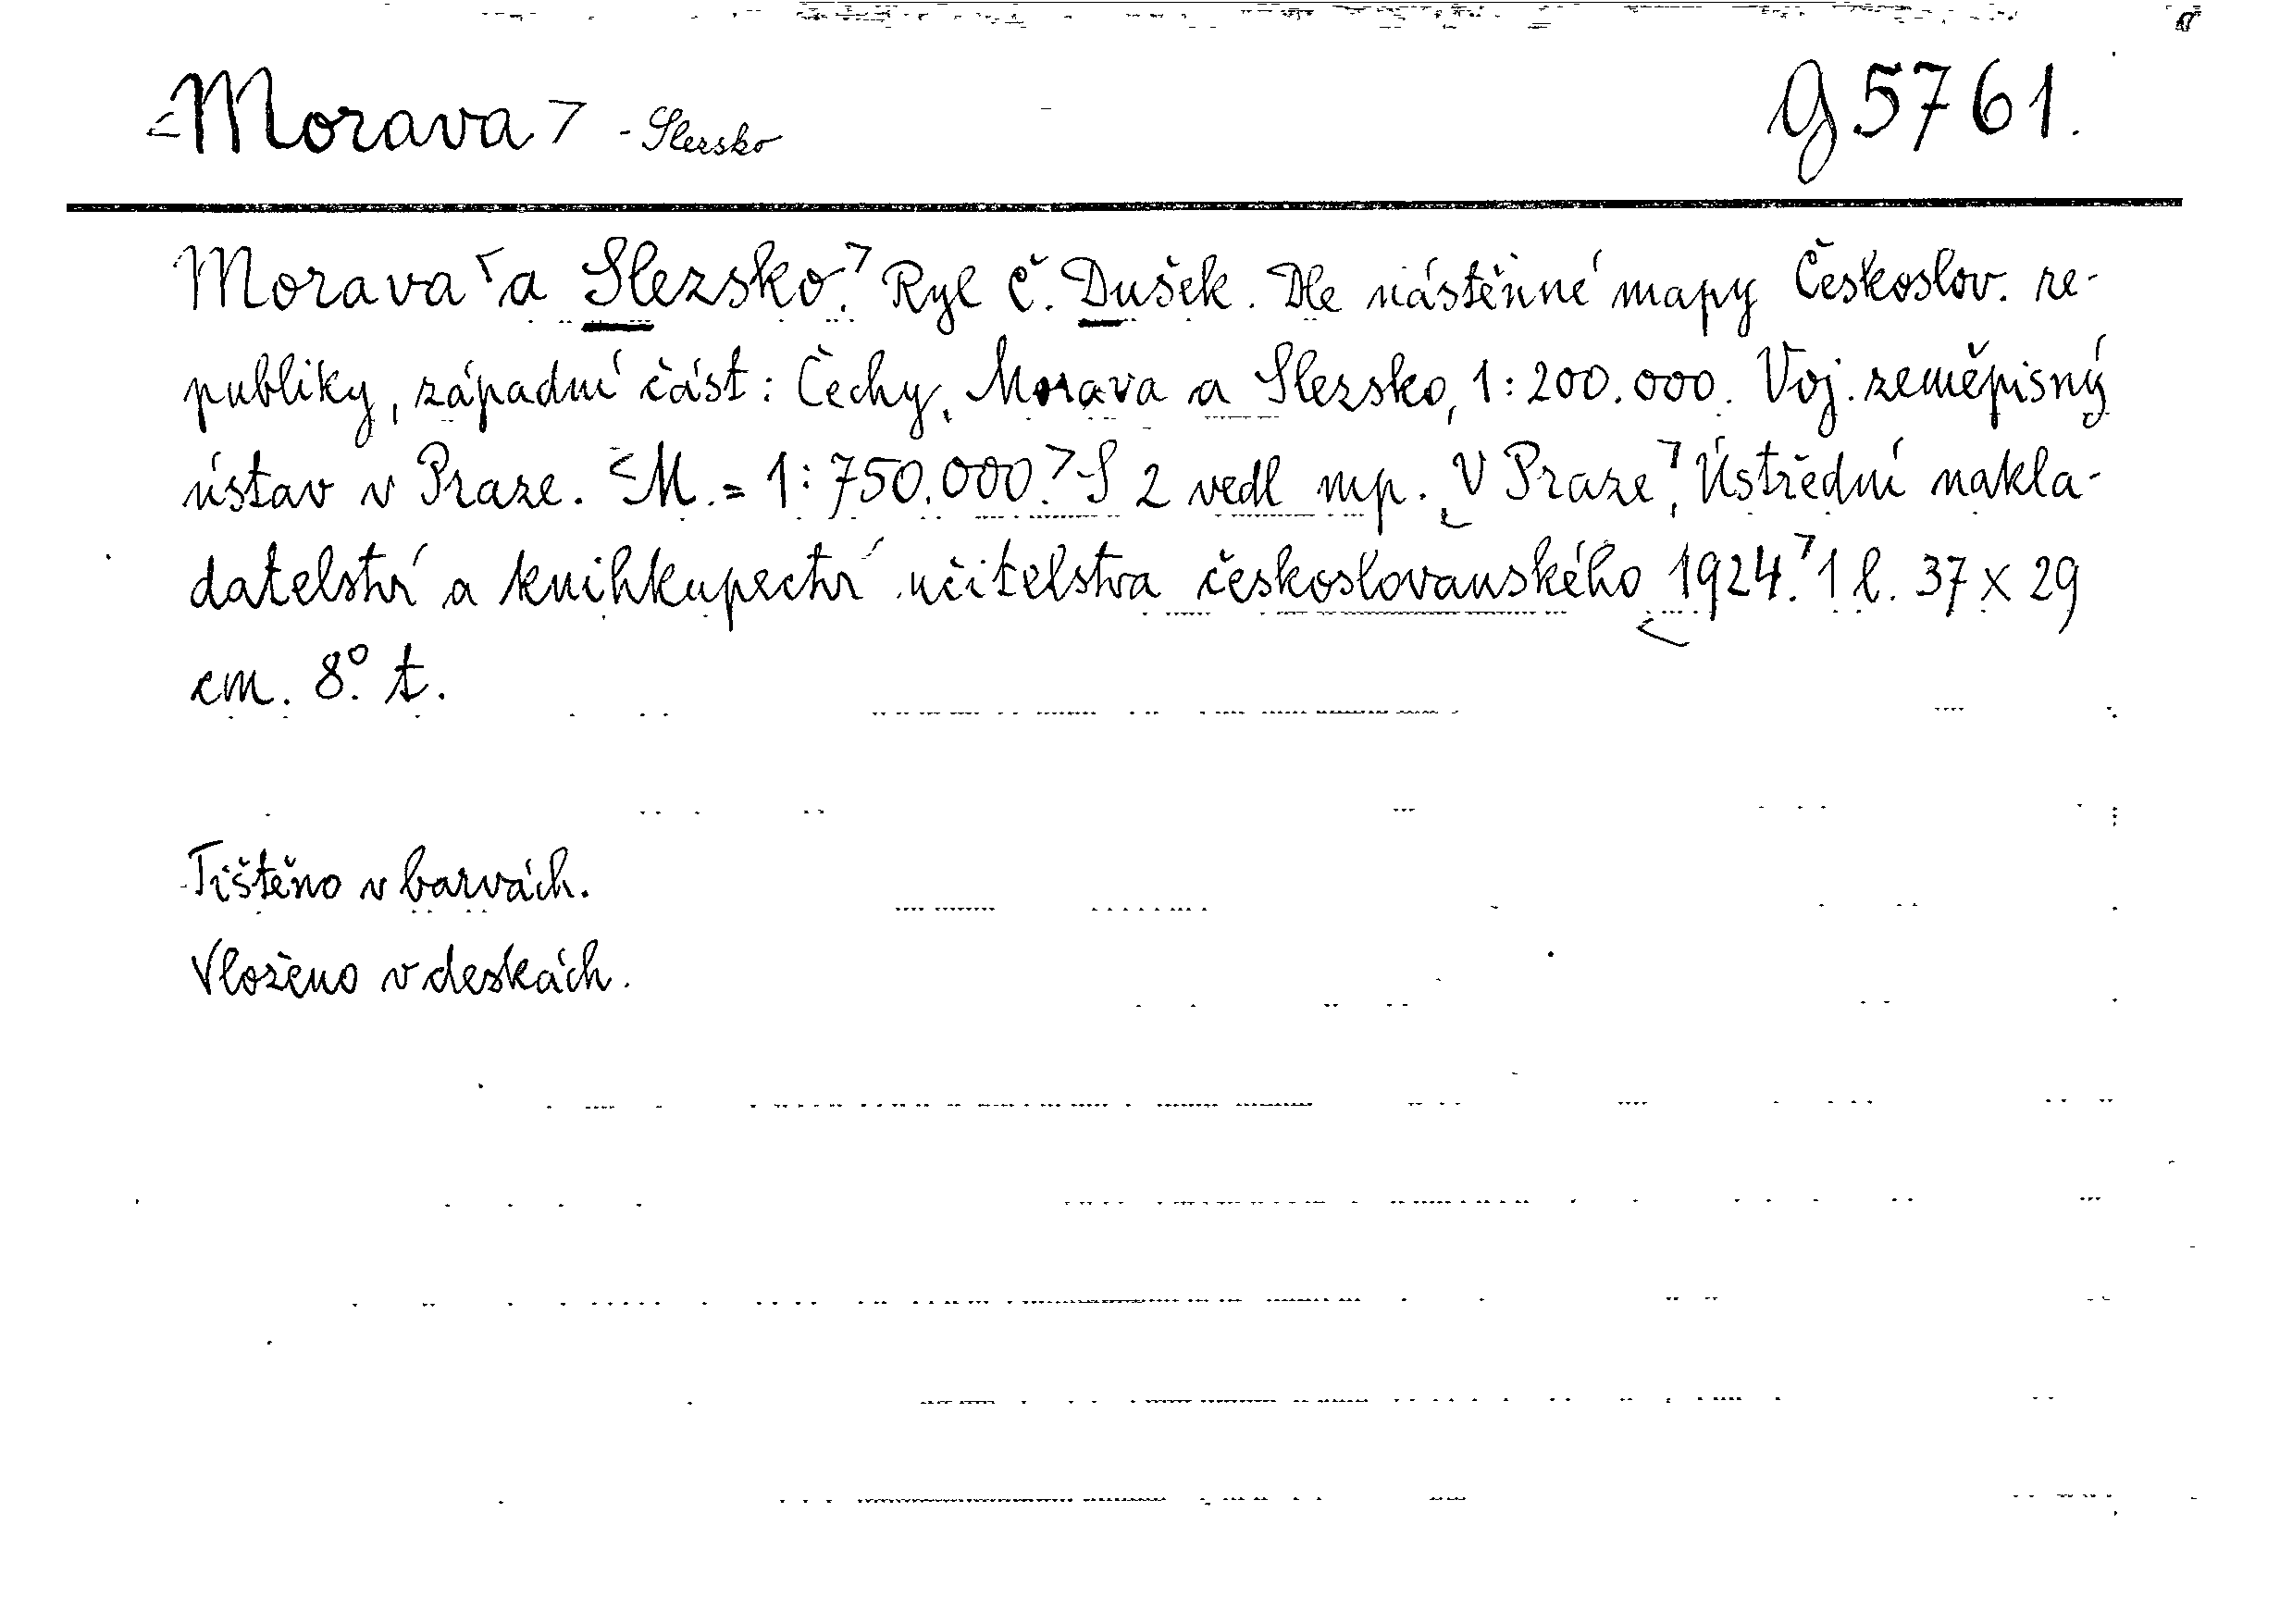 Morava - Slezsko
g 5761.
Morava a Slezsko. Ryl Č. Dušek. Dle nástěnné mapy Českoslov. re-
publiky, západní část: Čechy, Morava a Slezsko, 1:200.000. Voj. zeměpisný
ústav v Praze. M. = 1:750.000. S 2 vedl mp. V Praze, Ústřední nakla-
datelství a knihkupectví učitelstva českoslovanského 1924. 1 l. 37 x 29
cm. 8° t.
Tištěno v barvách.
Vloženo v deskách.